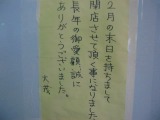 ２月の末日を持ちまして
閉店させて頂く事になりました
長年の御愛顧誠に
ありがとうございました。
大茂